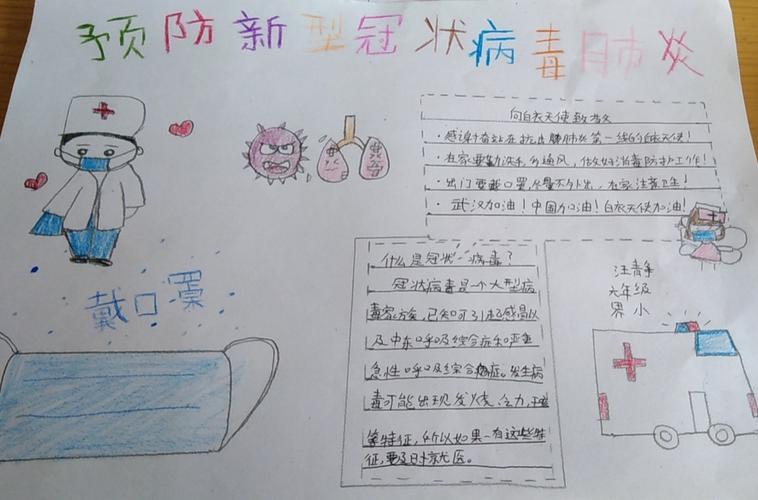 预防新型冠状病毒肺炎
向白衣天使致敬
·感谢奋站在抗击肺炎第一线的白衣天使！
·在家要勤洗手多通风，做好消毒防护工作！
·出门要戴口罩尽量不外出，在家注意卫生！
·武汉加油！中国加油！白衣天使加油！
什么是冠状病毒？
冠状病毒是一个大型病
毒家族，已知可引起感冒以
及中东呼吸综合症和严重
急性呼吸综合症。发生病
毒可能出现发烧、乏力、干咳
等特征，所以如果一有这些特
征，要及时就医。
汪静
六年级
界小
戴口罩